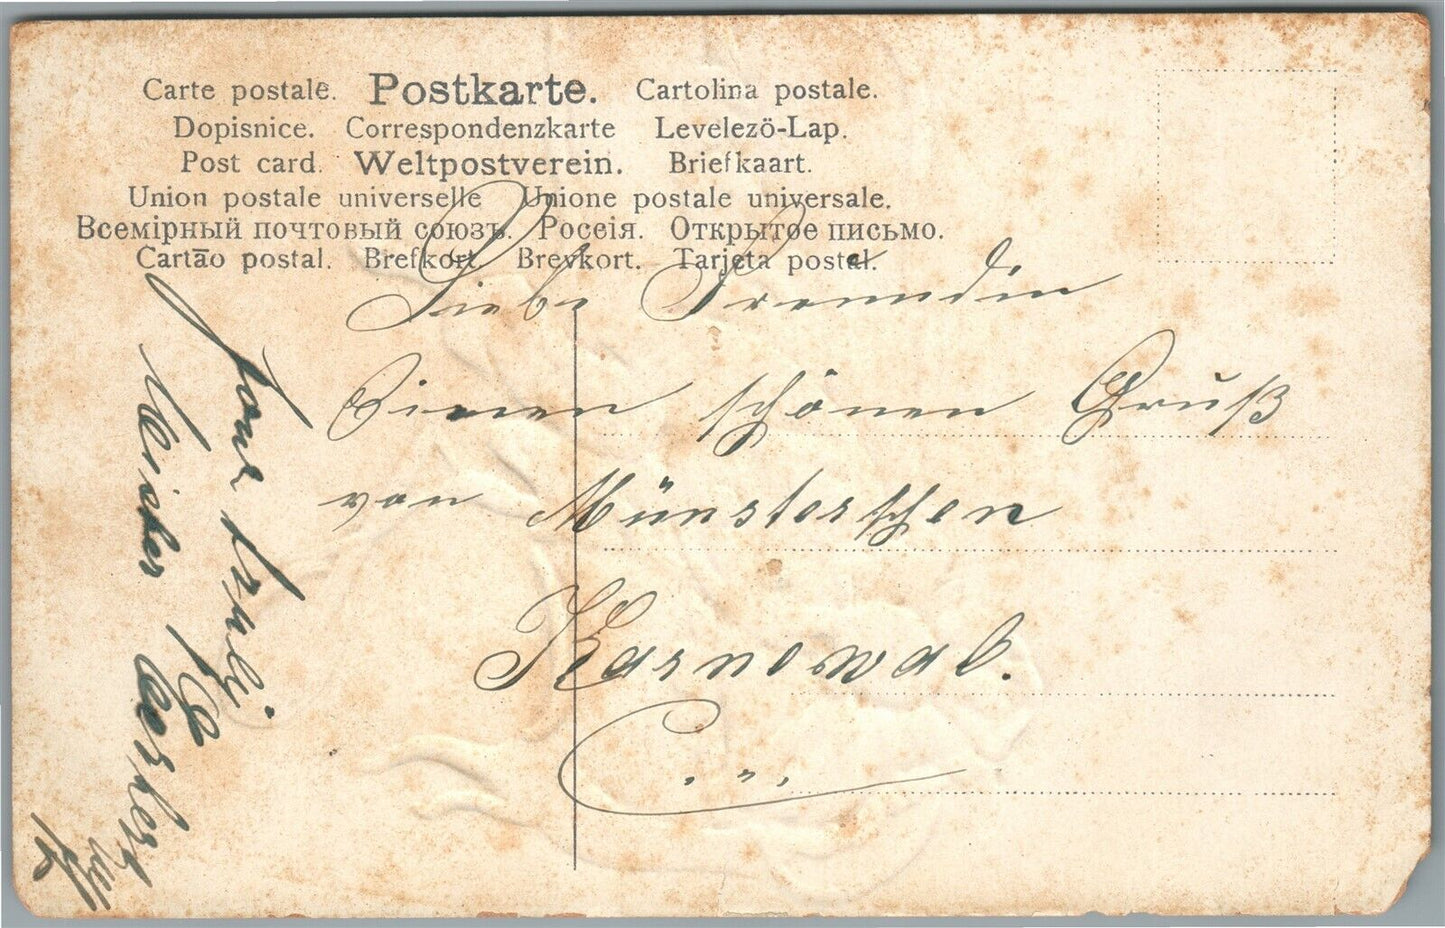 Carte postale. Postkarte. Cartolina postale.
Dopisnice. Correspondenzkarte Levelezö-Lap.
Post card. Weltpostverein. Briefkaart.
Union postale universelle Unione postale universale.
Всемірный почтовый союзъ. Россія. Открытое письмо.
Cartāo postal. Brefkort Brevkort. Tarjeta postal.
Liebe Freundin
Einen schönen Gruß
von Münsterschen
Karnewal.